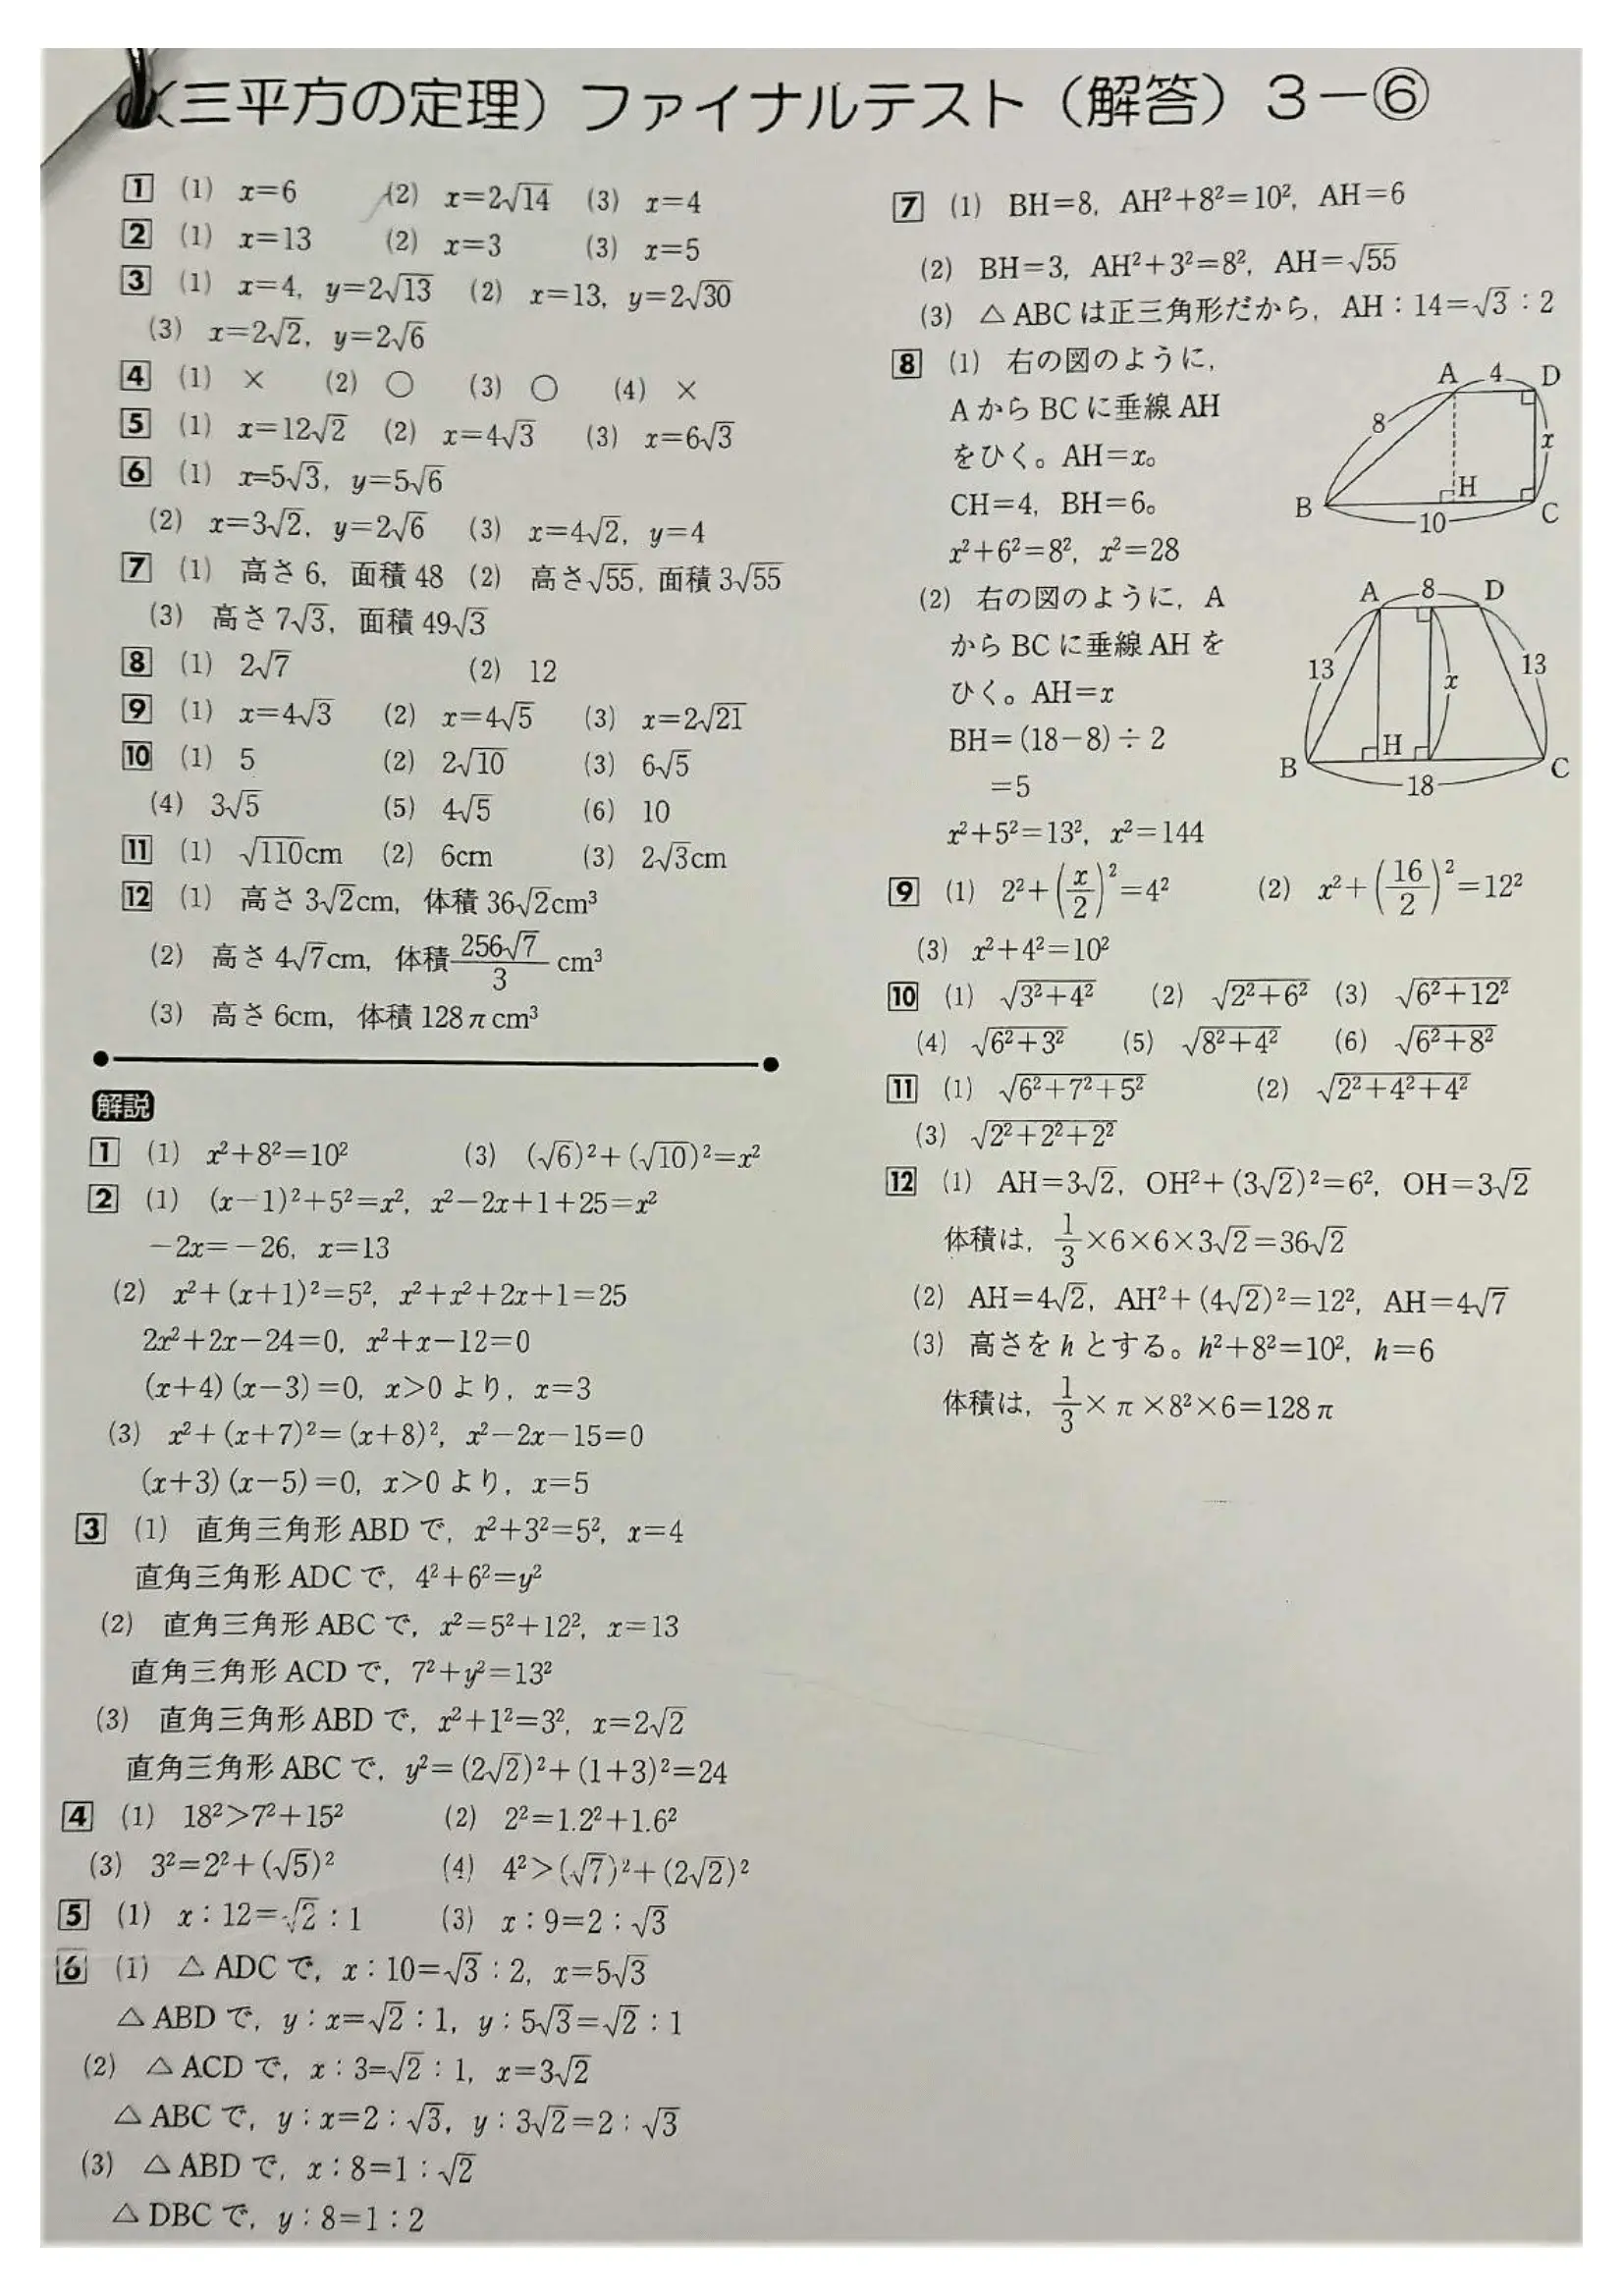 (三平方の定理) ファイナルテスト (解答) 3-⑥
1 (1) x=6 (2) x=2√14 (3) x=4
2 (1) x=13 (2) x=3 (3) x=5
3 (1) x=4, y=2√13 (2) x=13, y=2√30
(3) x=2√2, y=2√6
4 (1) × (2) ○ (3) ○ (4) ×
5 (1) x=12√2 (2) x=4√3 (3) x=6√3
6 (1) x=5√3, y=5√6
(2) x=3√2, y=2√6 (3) x=4√2, y=4
7 (1) 高さ 6, 面積 48 (2) 高さ√55, 面積 3√55
(3) 高さ 7√3, 面積 49√3
8 (1) 2√7 (2) 12
9 (1) x=4√3 (2) x=4√5 (3) x=2√21
10 (1) 5 (2) 2√10 (3) 6√5
(4) 3√5 (5) 4√5 (6) 10
11 (1) √110cm (2) 6cm (3) 2√3cm
12 (1) 高さ 3√2cm, 体積 36√2cm³
(2) 高さ 4√7cm, 体積 256√7/3 cm³
(3) 高さ 6cm, 体積 128πcm³
解説
1 (1) x²+8²=10² (3) (√6)²+(√10)²=x²
2 (1) (x-1)²+5²=x², x²-2x+1+25=x²
-2x=-26, x=13
(2) x²+(x+1)²=5², x²+x²+2x+1=25
2x²+2x-24=0, x²+x-12=0
(x+4)(x-3)=0, x>0 より, x=3
(3) x²+(x+7)²=(x+8)², x²-2x-15=0
(x+3)(x-5)=0, x>0 より, x=5
3 (1) 直角三角形 ABD で, x²+3²=5², x=4
直角三角形 ADC で, 4²+6²=y²
(2) 直角三角形 ABC で, x²=5²+12², x=13
直角三角形 ACD で, 7²+y²=13²
(3) 直角三角形 ABD で, x²+1²=3², x=2√2
直角三角形 ABC で, y²=(2√2)²+(1+3)²=24
4 (1) 18²>7²+15² (2) 2²=1.2²+1.6²
(3) 3²=2²+(√5)² (4) 4²>(√7)²+(2√2)²
5 (1) x:12=√2:1 (3) x:9=2:√3
6 (1) △ADC で, x:10=√3:2, x=5√3
△ABD で, y:x=√2:1, y:5√3=√2:1
(2) △ACD で, x:3=√2:1, x=3√2
△ABC で, y:x=2:√3, y:3√2=2:√3
(3) △ABD で, x:8=1:√2
△DBC で, y:8=1:2
7 (1) BH=8, AH²+8²=10², AH=6
(2) BH=3, AH²+3²=8², AH=√55
(3) △ABC は正三角形だから, AH:14=√3:2
8 (1) 右の図のように,
A から BC に垂線 AH
をひく。AH=x。
CH=4, BH=6。
x²+6²=8², x²=28
A 4 D
8 x
B H C
10
(2) 右の図のように, A
から BC に垂線 AH を
ひく。AH=x
BH=(18-8)÷2
=5
x²+5²=13², x²=144
A 8 D
13 x 13
B H C
18
9 (1) 2²+(x/2)²=4² (2) x²+(16/2)²=12²
(3) x²+4²=10²
10 (1) √3²+4² (2) √2²+6² (3) √6²+12²
(4) √6²+3² (5) √8²+4² (6) √6²+8²
11 (1) √6²+7²+5² (2) √2²+4²+4²
(3) √2²+2²+2²
12 (1) AH=3√2, OH²+(3√2)²=6², OH=3√2
体積は, 1/3×6×6×3√2=36√2
(2) AH=4√2, AH²+(4√2)²=12², AH=4√7
(3) 高さを h とする。h²+8²=10², h=6
体積は, 1/3×π×8²×6=128π